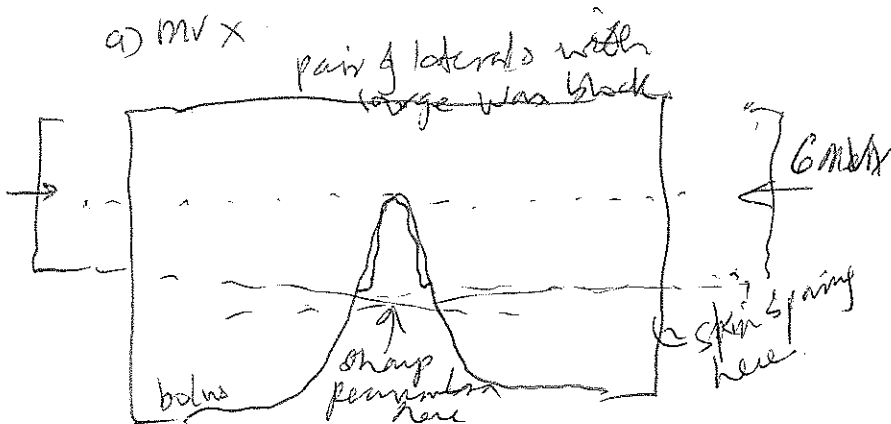 a) MV X
pair of laterals with
large wax block
6 MV X
skin sparing
here
sharp
penumbra
here
bolus